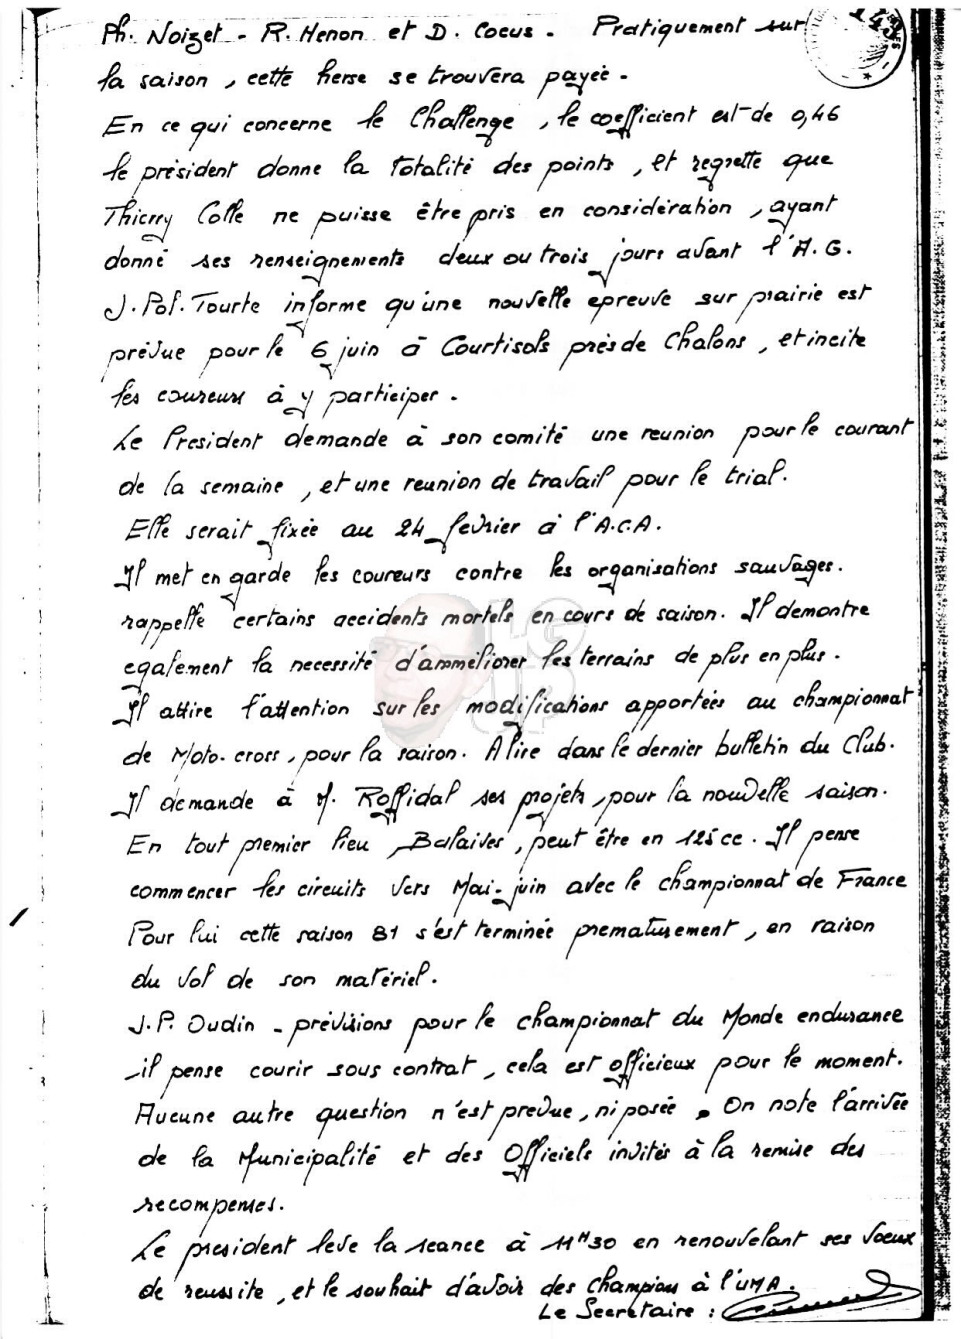 Ph. Noizet - R. Henon et D. Cocus - Pratiquement sur
la saison, cette herse se trouvera payée.
En ce qui concerne le Challenge, le coefficient est de 0,46
le président donne la totalité des points, et regrette que
Thierry Colle ne puisse être pris en considération, ayant
donné ses renseignements deux ou trois jours avant l'A.G.
J. Pol. Tourte informe qu'une nouvelle epreuve sur prairie est
prévue pour le 6 juin à Courtisols près de Chalons, et incite
les coureurs à y participer.
Le President demande à son comité une reunion pour le courant
de la semaine, et une reunion de travail pour le trial.
Elle serait fixée au 24 fevrier à l'A.C.A.
Il met en garde les coureurs contre les organisations sauvages.
rappelle certains accidents mortels en cours de saison. Il demontre
egalement la necessité d'amméliorer les terrains de plus en plus.
Il attire l'attention sur les modifications apportées au championnat
de Moto-cross, pour la saison. A lire dans le dernier bulletin du Club.
Il demande à M. Roffidal ses projets, pour la nouvelle saison.
En tout premier lieu, Balaives, peut être en 125 cc. Il pense
commencer les circuits vers Mai-juin avec le championnat de France
Pour lui cette saison 81 s'est terminée prematurement, en raison
du vol de son matériel.
J.P. Oudin - prévisions pour le championnat du Monde endurance
il pense courir sous contrat, cela est officieux pour le moment.
Aucune autre question n'est prevue, ni posée. On note l'arrivée
de la Municipalité et des Officiels invités à la remise des
recompenses.
Le president leve la seance à 11H30 en renouvelant ses voeux
de reussite, et le souhait d'avoir des champions à l'UMA.
Le Secretaire :
LG
UP